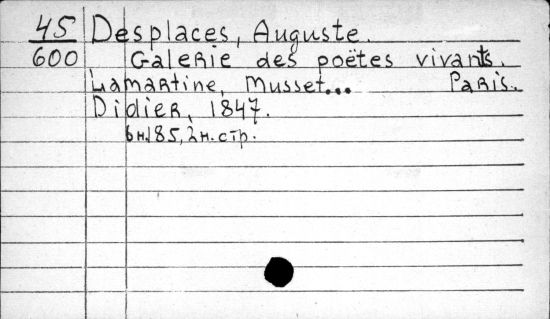 45 Desplaces, Auguste.
600 Galerie des poëtes vivants.
Lamartine, Musset... Paris.
Didier, 1847.
6н.185, 2н. стр.